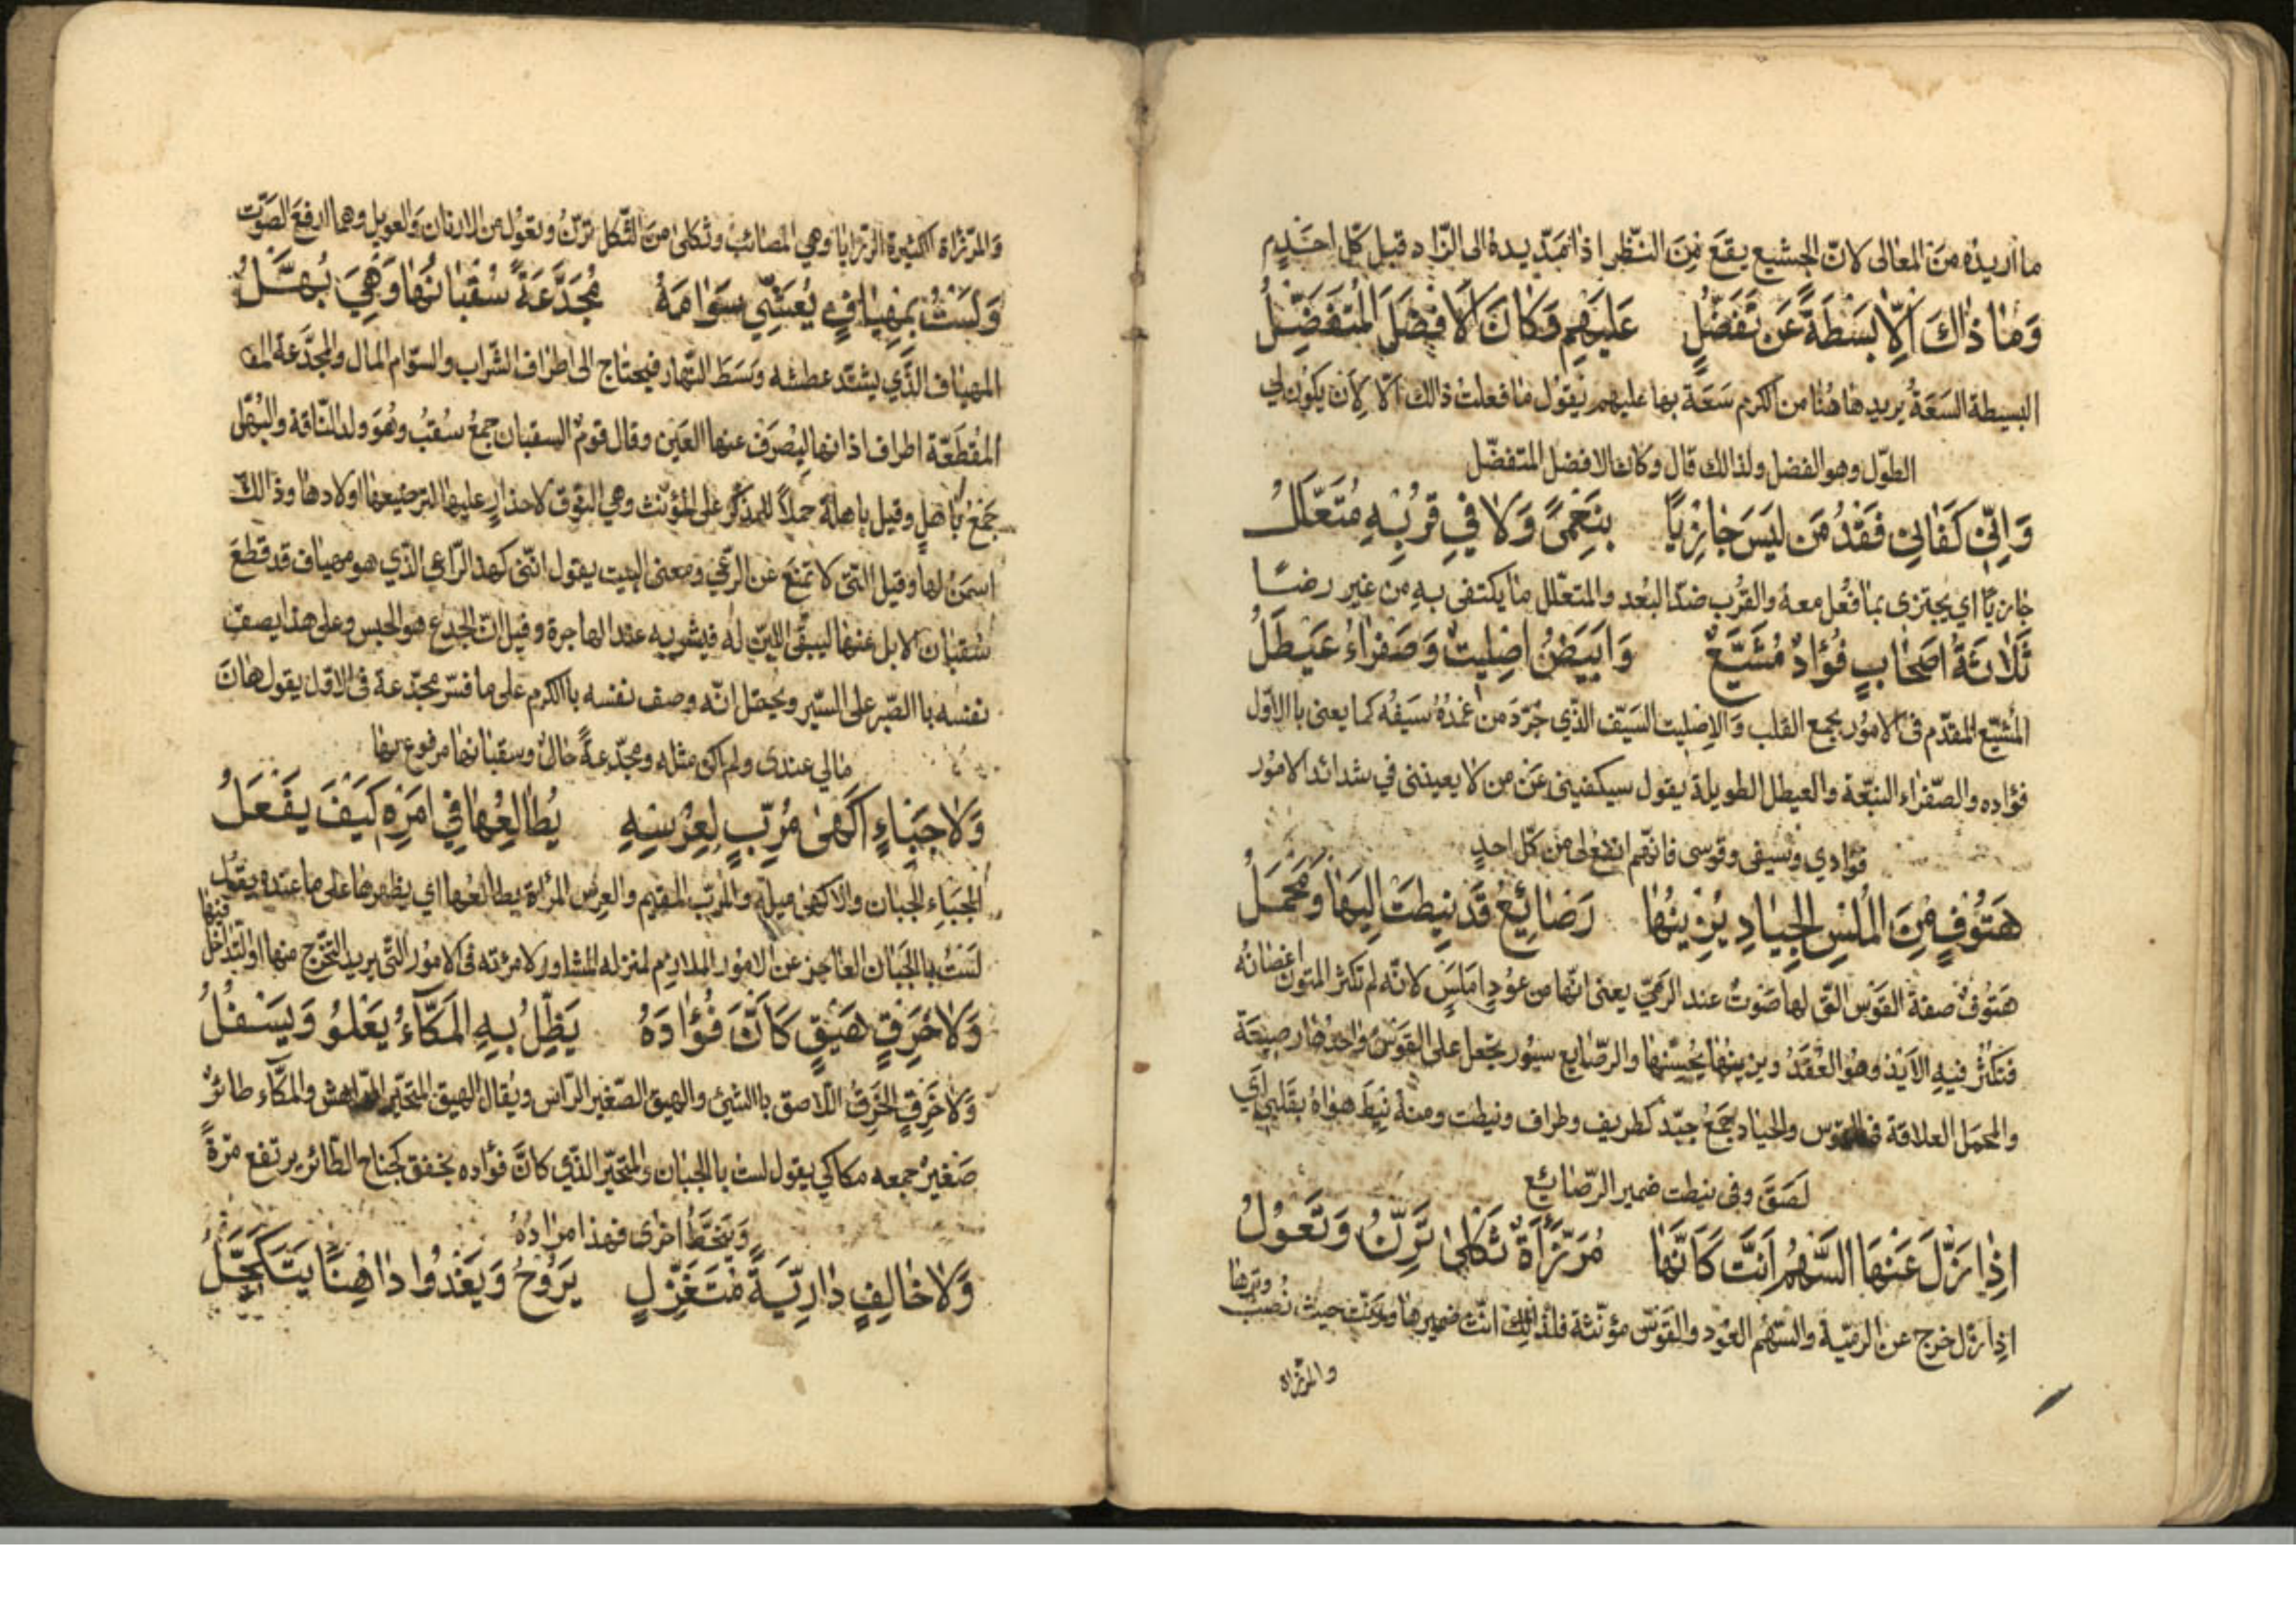 ما اريده من المعالى لانّ الجشيع يقع من النّظر اذا يمدّ يده الى الزّاد قبل كلّ احدٍ
وَمَا ذَاكَ اِلّا بَسْطَةً عَن تَفَضُّلٍ عَلَيْهِم وَكَانَ الَافْضَلَ المُتَفَضِّلُ
البسيطة السَعَةُ يريد هاهُنا من الكرم سَعَة بها عليهم يقول ما فعلتُ ذالك الّا لِأن يكون لي
الطوّل وهو الفضل ولذالك قال وكان الافضل المتفضّل
وَاِنّي كَفَانِي فَقْدُ مَن لَيسَ جَازِيًا بِنَعْمَى وَلَا فِي قُرْبِهِ مُتَعَلَّلُ
جازيًا اي يجتزى بما فُعل معه والقرب ضدّ البُعد والمتعلّل ما يكتفى به من غير رضًا
ثَلَاثَةُ اَصْحَابٍ فُؤَادٌ مُشَيَّعٌ وَابَيَضُ اِصْلِيتٌ وَصَفْرَاءُ عَيْطَلُ
المُشَيّع المقدّم فى الامُور بجمع القلب وَالاِصْليت السَيّف الذّي جُرّدَ من غمدُهُ سَيفُه كما يعنى باالاوّل
فؤاده والصّفراء النبعّة والعيطل الطويلة يقول سيكفينى عَن من لا يعيننى في شدائد الامُور
فؤادي وسيفى وقوسى فانهّم انفع لى من كلّ احدٍ
هَتُوفٍ مِنَ المُلْسِ الجِيَادِ يَزِينُهَا رَضَائِعُ قَد نِيطَت اِلَيهَا وَمَحْمَلُ
هَتُوفٌ صفة القوَس التّى لها صَوتٌ عند الرَمْيّ يعنى انّها من عوُدٍ امَلسٍ لانّه لم تكثر المتون اغصانُه
فتكثر فيهِ الاَبَذ وهوُ العُقَدُ ويزينُها يُحسِّنُها والرصّايع سيُور يجعل على القَوسُ واحدُها رصيعَة
والمحمَل العلاقة والجياد جَمعُ جيّد كطريف وطراف ونيطت ومنهُ نِيطَ هَواهُ بقَلبي اي
لَصَقَ وفى نيطت ضمير الرصّائع
اِذا زَلَّ عَنْهَا السَّهْمُ اَنَّت كَاَنَّهَا مُرَزَّأةٌ ثَكْلَى تَرِنُّ وَتَعوِلُ
اذا زلّ خرج عن الرميّة والسّهُم العوُد والقَوسّ مؤنّثة فلذالك انّث ضميرها وانّت حيث نُصبُ وترها
والمرّزاة
وَالمرّزاة الكثيرة الرزايا وهي المصائب وثكلى من الثّكل ترنّ وتعوُل من الارنان وَالعويل وهما ارفعَ الصَوّت
وَلَسْتُ بِمِهْيَافٍ يُعَشِّي سَوَامَهُ مُجَدَّعَةً سُقْبَانُهَا وَهِيَ بُهَّلُ
المهياف الذّي يشتد عطشه وَسَطَ النّهار فيحتاج الى اطراف الشراب والسوّام المال والمجدّعة
المُقطَعّة اطراف اذانها ليُصْرَف عنها العَين وقال قومٌ السقبان جمعُ سُقبُ وهُوَ ولد النّاقة والبُهّل
جَمعُ باهلٍ وقيل باهلة حملاً للمذكّر على المؤنّث وهي النّوق لاحذار عليها لترضيعها اولادها وذالكَ
اسمَن لها وقيل التّى لا تمنع عن الرعّي ومعنى البيت يقول انّنى كهذ الرّاعي الذّي هو مهياف قد قطعَ
سُقبان الابل عنها ليبقى اللبن لهُ فيشربه عند الهاجرة وقيل انّ الجدع هو الحبس وعلى هذا يصف
نفسه باالصّبر على السّير ويحصل انّه وصف نفسه باالكرم على ما فسّر مجدّعة فى الاوّل يقول هانَ
مالي عندى ولم اكن مثله ومجدّعةً حالٌ وسقبانها مرفوع بها
وَلَا جَبَّاءٍ اَكْهَى مُرِبٍّ لِعِرْسِهِ يُطَالِعُهَا فِي اَمْرِهِ كَيْفَ يَفْعَلُ
الجَبّاء الجبان والاكهى والمُربّ المقيم والعِرس المرأة يطالعُها اي يظهرها على ما عنده يقول
لستُ باالجَبان العاجز عن الامُور الملازم لمنزله المشاور لامرئته فى الامُور التّى يريد التخرّج منها او التدّاخل فيها
وَلَا خَرِقٍ هَيْقٍ كَاَنَّ فُؤَادَهُ يَظَلُّ بِهِ المَكّاءُ يَعْلُو وَيَسْفُلُ
وَلا خَرِقٍ الخَرِقُ اللّاصق باالشئ والهيق الصّغير الرّاس ويُقال الهيق المتحيّر والمكّاء طائرٌ
صَغيرٌ جمعه مكاكي يقول لست باالجبان والمتحيّر الذّي كانّ فؤاده يخفق كجناح الطّائر يرتفع مرّةً
وَيَنحَّطُ اخرى فهذا مراده
وَلَا خَالِفٍ دَارِيَّةٍ مُتَغَزِّلٍ يَرُوحُ وَيَغْدُوا دَاهِنًا يَتَكَحَّلُ